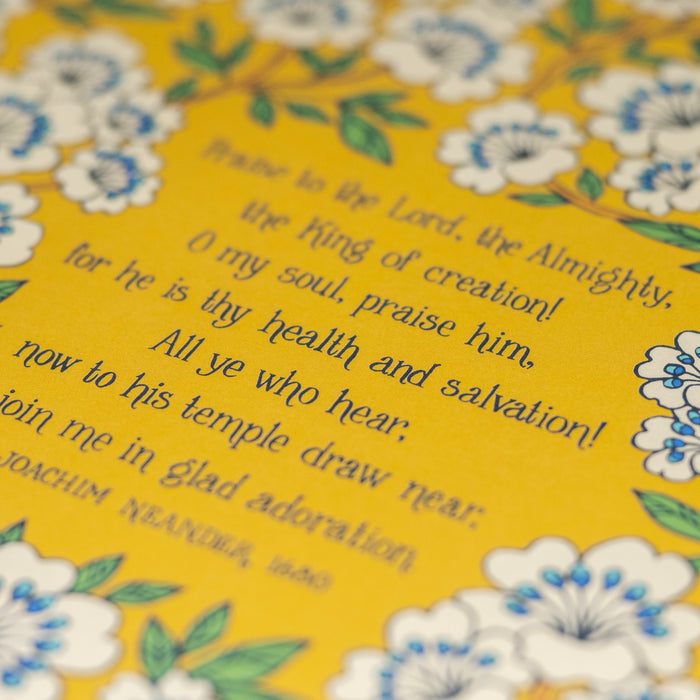 Praise to the Lord, the Almighty,
the King of creation!
O my soul, praise him,
for he is thy health and salvation!
All ye who hear,
now to his temple draw near;
join me in glad adoration
JOACHIM NEANDER, 1680